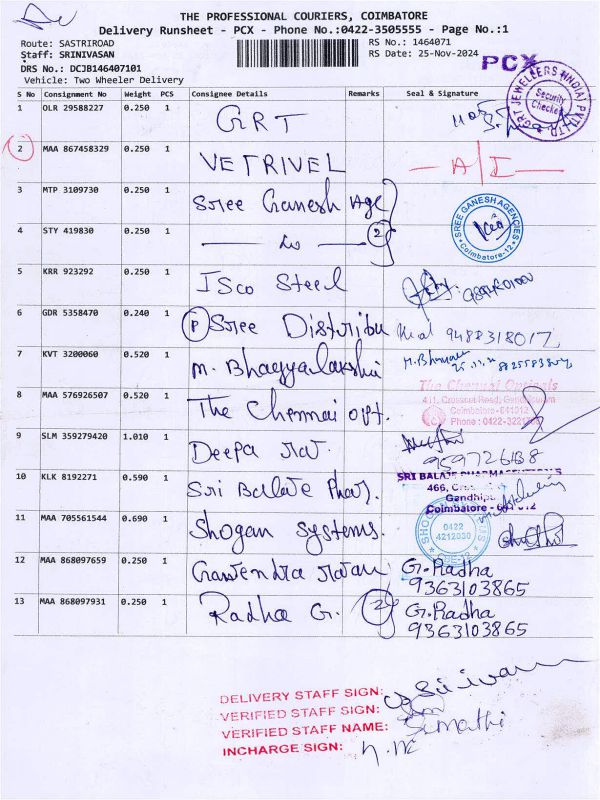 THE PROFESSIONAL COURIERS, COIMBATORE
Delivery Runsheet - PCX - Phone No.:0422-3505555 - Page No.:1
Route: SASTRIROAD
Staff: SRINIVASAN
DRS No.: DCJB146407101
Vehicle: Two Wheeler Delivery
RS No.: 1464071
RS Date: 25-Nov-2024
PCX
GRT JEWELLERS (INDIA) PVT LTD
Security Checked
S No Consignment No Weight PCS Consignee Details Remarks Seal & Signature
1 OLR 29588227 0.250 1 GRT
2 MAA 867458329 0.250 1 VETRIVEL
3 MTP 3109730 0.250 1 Sree Ganesh Age
SREE GANESH AGENCIES
Coimbatore-12
4 STY 419830 0.250 1 2
5 KRR 923292 0.250 1 Isco Steel
6 GDR 5358470 0.240 1 P Sree Distribu 9488318017
7 KVT 3200060 0.520 1 M. Bhagyalakshmi
The Chennai Opticals
411, Crosscut Road, Gandhipuram
Coimbatore-641012
Phone : 0422-
8 MAA 576926507 0.520 1 The Chennai opt.
9 SLM 359279420 1.010 1 Deepa
SRI BALAJE
466,
Gandhipu
Coimbatore -
10 KLK 8192271 0.590 1 Sri Balaje Phar.
11 MAA 705561544 0.690 1 Shogan Systems.
0422
4212030
12 MAA 868097659 0.250 1 G. Radha
9363103865
13 MAA 868097931 0.250 1 Radha G. 2 G. Radha
9363103865
DELIVERY STAFF SIGN:
VERIFIED STAFF SIGN:
VERIFIED STAFF NAME: Sumathi
INCHARGE SIGN: